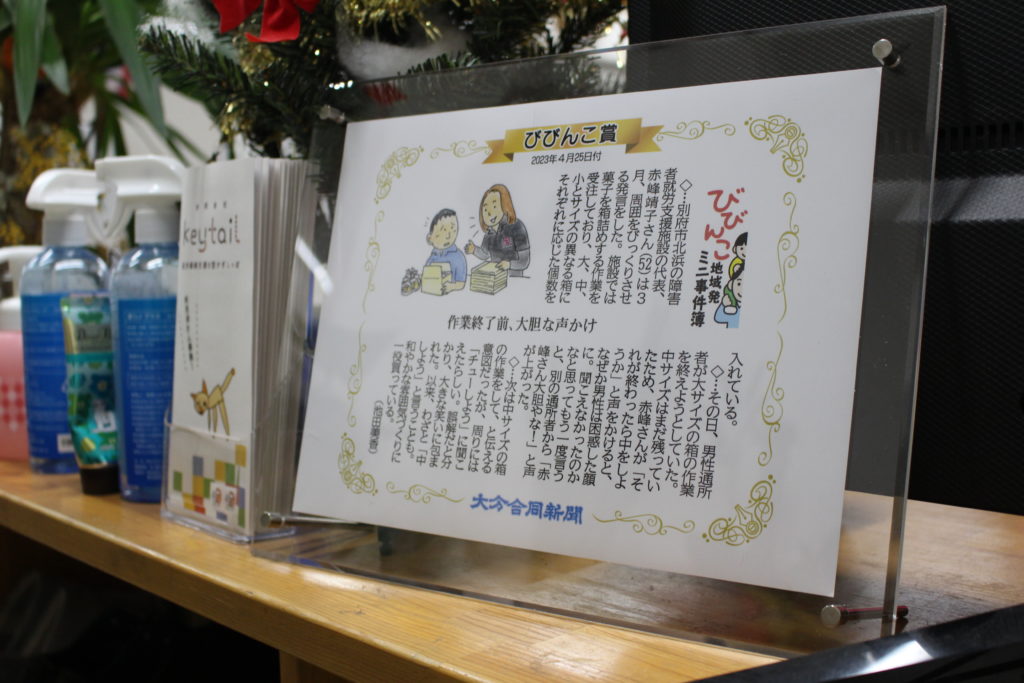 びびんこ賞
2023年4月25日付
びびんこ
地域発
ミニ事件簿
◇…別府市北浜の障害
者就労支援施設の代表、
赤峰靖子さん(52)は3
月、周囲をびっくりさせ
る発言をした。施設では
菓子を箱詰めする作業を
受注しており、大、中、
小とサイズの異なる箱に
それぞれに応じた個数を
作業終了前、大胆な声かけ
入れている。
◇…その日、男性通所
者が大サイズの箱の作業
を終えようとしていた。
中サイズはまだ残ってい
たため、赤峰さんが「そ
れが終わったら中をしよ
うか」と声をかけると、
なぜか男性は困惑した顔
に。聞こえなかったのか
なと思ってもう一度言う
と、別の通所者から「赤
峰さん大胆やな!」と声
が上がった。
◇…次は中サイズの箱
の作業をして、と伝える
意図だったが、周りには
「チューしよう」に聞こ
えたらしい。誤解だと分
かり、大きな笑いに包ま
れた。以来、わざと「中
しよう」と言うことも。
和やかな雰囲気づくりに
一役買っている。
(池田美香)
大分合同新聞
keytail